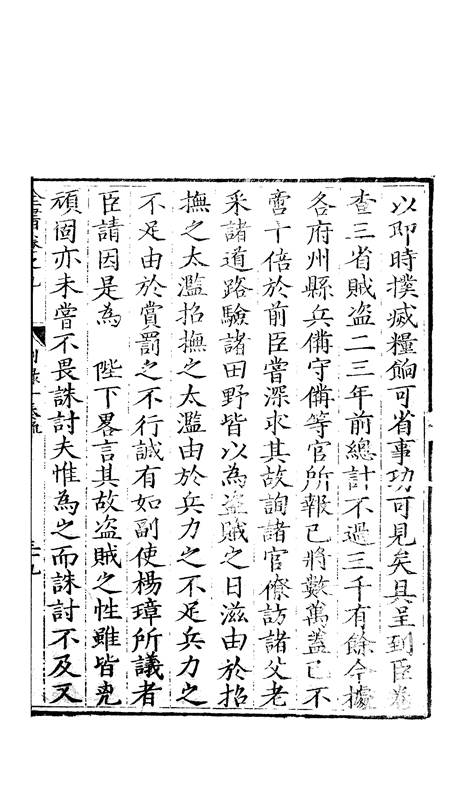 以即時撲滅糧餉可省事功可見矣具呈到臣卷
查三省賊盗二三年前總計不過三千有餘今據
各府州縣兵備守備等官所報已將數萬蓋已不
啻十倍於前臣嘗深求其故詢諸官僚訪諸父老
采諸道路驗諸田野皆以為盗賊之日滋由於招
撫之太濫招撫之太濫由於兵力之不足兵力之
不足由於賞罰之不行誠有如副使楊璋所議者
臣請因是為 陛下畧言其故盗賊之性雖皆兇
頑固亦未嘗不畏誅討夫惟為之而誅討不及又